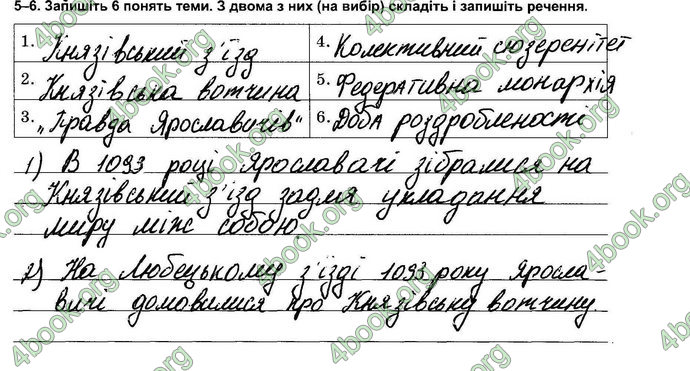 5–6. Запишіть 6 понять теми. З двома з них (на вибір) складіть і запишіть речення.
1. Князівський з'їзд
4. Колективний сюзеренітет
2. Князівська вотчина
5. Федеративна монархія
3. „Правда Ярославичів"
6. Доба роздробленості
1) В 1093 році Ярославачі зібралися на
Князівський з'їзд задля укладання
миру між собою.
2) На Любецькому з'їзді 1093 року Яросла-
вичі домовилися про Князівську вотчину.
4book.org
4book.org
4book.org
4book.org
4book.org
4book.org